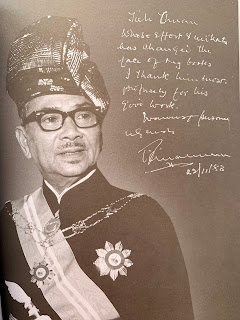 Tuh Oman
whose effort & initiative
has changed the
face of my books
I thank him most
profusely for his
good work.
Warmest personal
regards
23/11/83